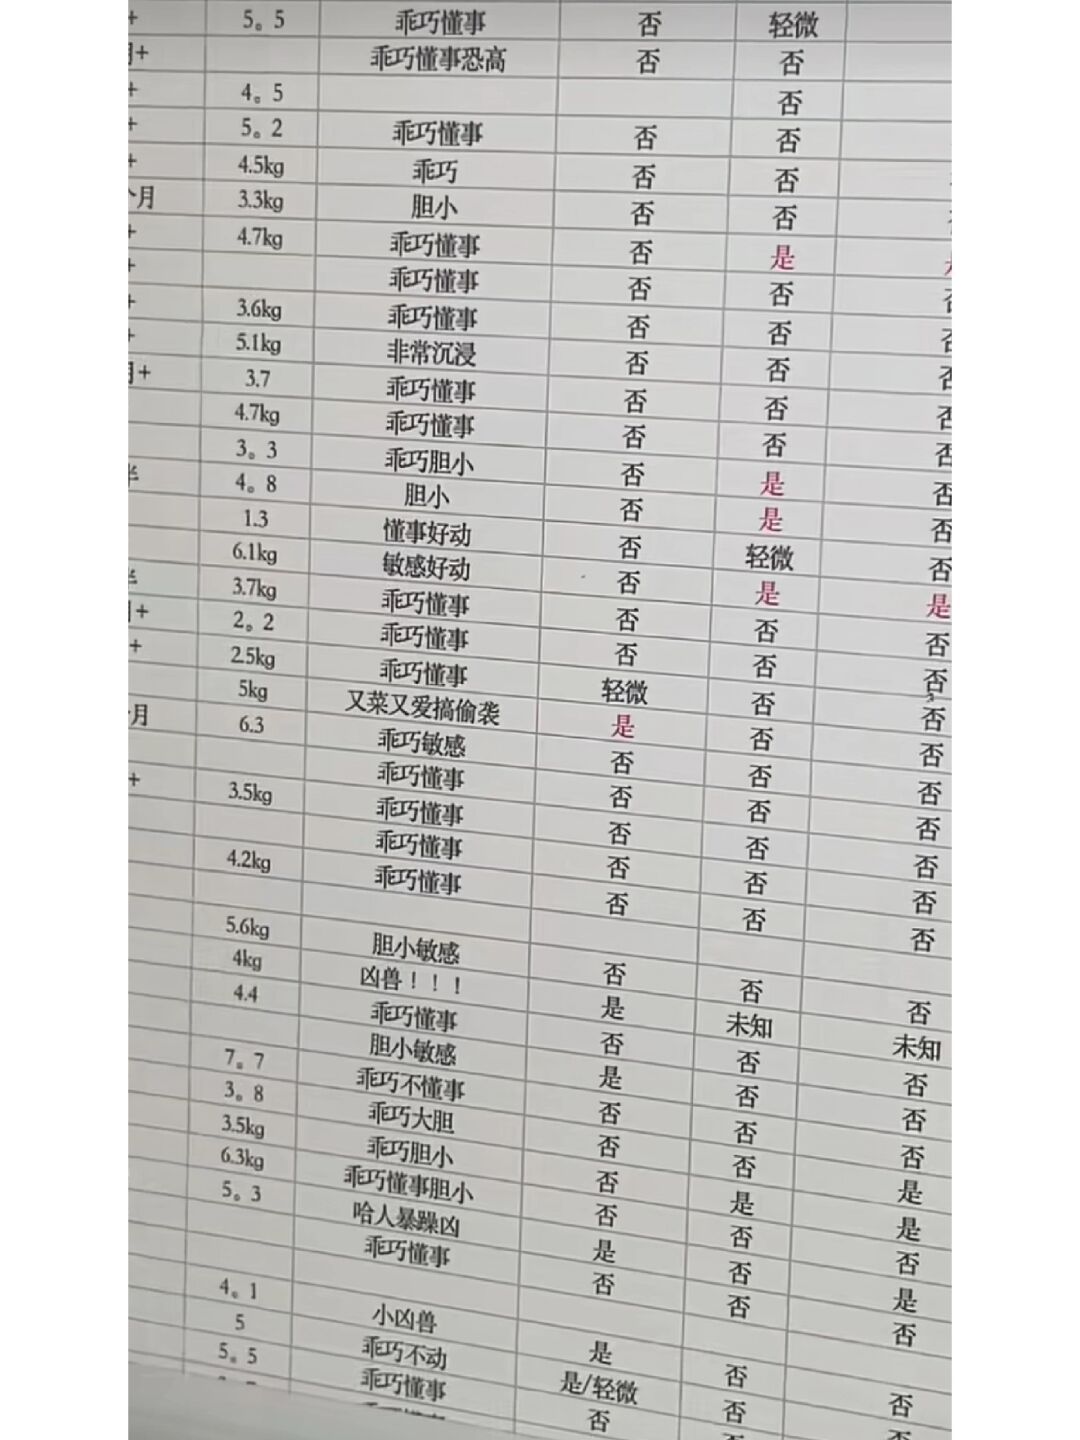 + 5。5 乖巧懂事 否 轻微
月+ 乖巧懂事恐高 否 否
+ 4。5 否
+ 5。2 乖巧懂事 否 否
+ 4.5kg 乖巧 否 否
个月 3.3kg 胆小 否 否
+ 4.7kg 乖巧懂事 否 是
+ 乖巧懂事 否 否 否
+ 3.6kg 乖巧懂事 否 否 否
+ 5.1kg 非常沉浸 否 否 否
月+ 3.7 乖巧懂事 否 否 否
4.7kg 乖巧懂事 否 否 否
3。3 乖巧胆小 否 是 否
半 4。8 胆小 否 是 否
1.3 懂事好动 否 轻微 否
6.1kg 敏感好动 否 是 是
半 3.7kg 乖巧懂事 否 否 否
月+ 2。2 乖巧懂事 否 否 否
+ 2.5kg 乖巧懂事 轻微 否 否
5kg 又菜又爱搞偷袭 是 否 否
月 6.3 乖巧敏感 否 否 否
乖巧懂事 否 否 否
+ 3.5kg 乖巧懂事 否 否 否
乖巧懂事 否 否 否
4.2kg 乖巧懂事 否 否 否
5.6kg 胆小敏感 否 否 否
4kg 凶兽！！！ 是 未知 未知
4.4 乖巧懂事 否 否 否
胆小敏感 是 否 否
7。7 乖巧不懂事 否 否 否
3。8 乖巧大胆 否 否 是
3.5kg 乖巧胆小 否 是 是
6.3kg 乖巧懂事胆小 否 否 否
5。3 哈人暴躁凶 是 否 是
乖巧懂事 否 否 否
4。1 小凶兽 是 否 否
5 乖巧不动 是/轻微 否
5。5 乖巧懂事 否